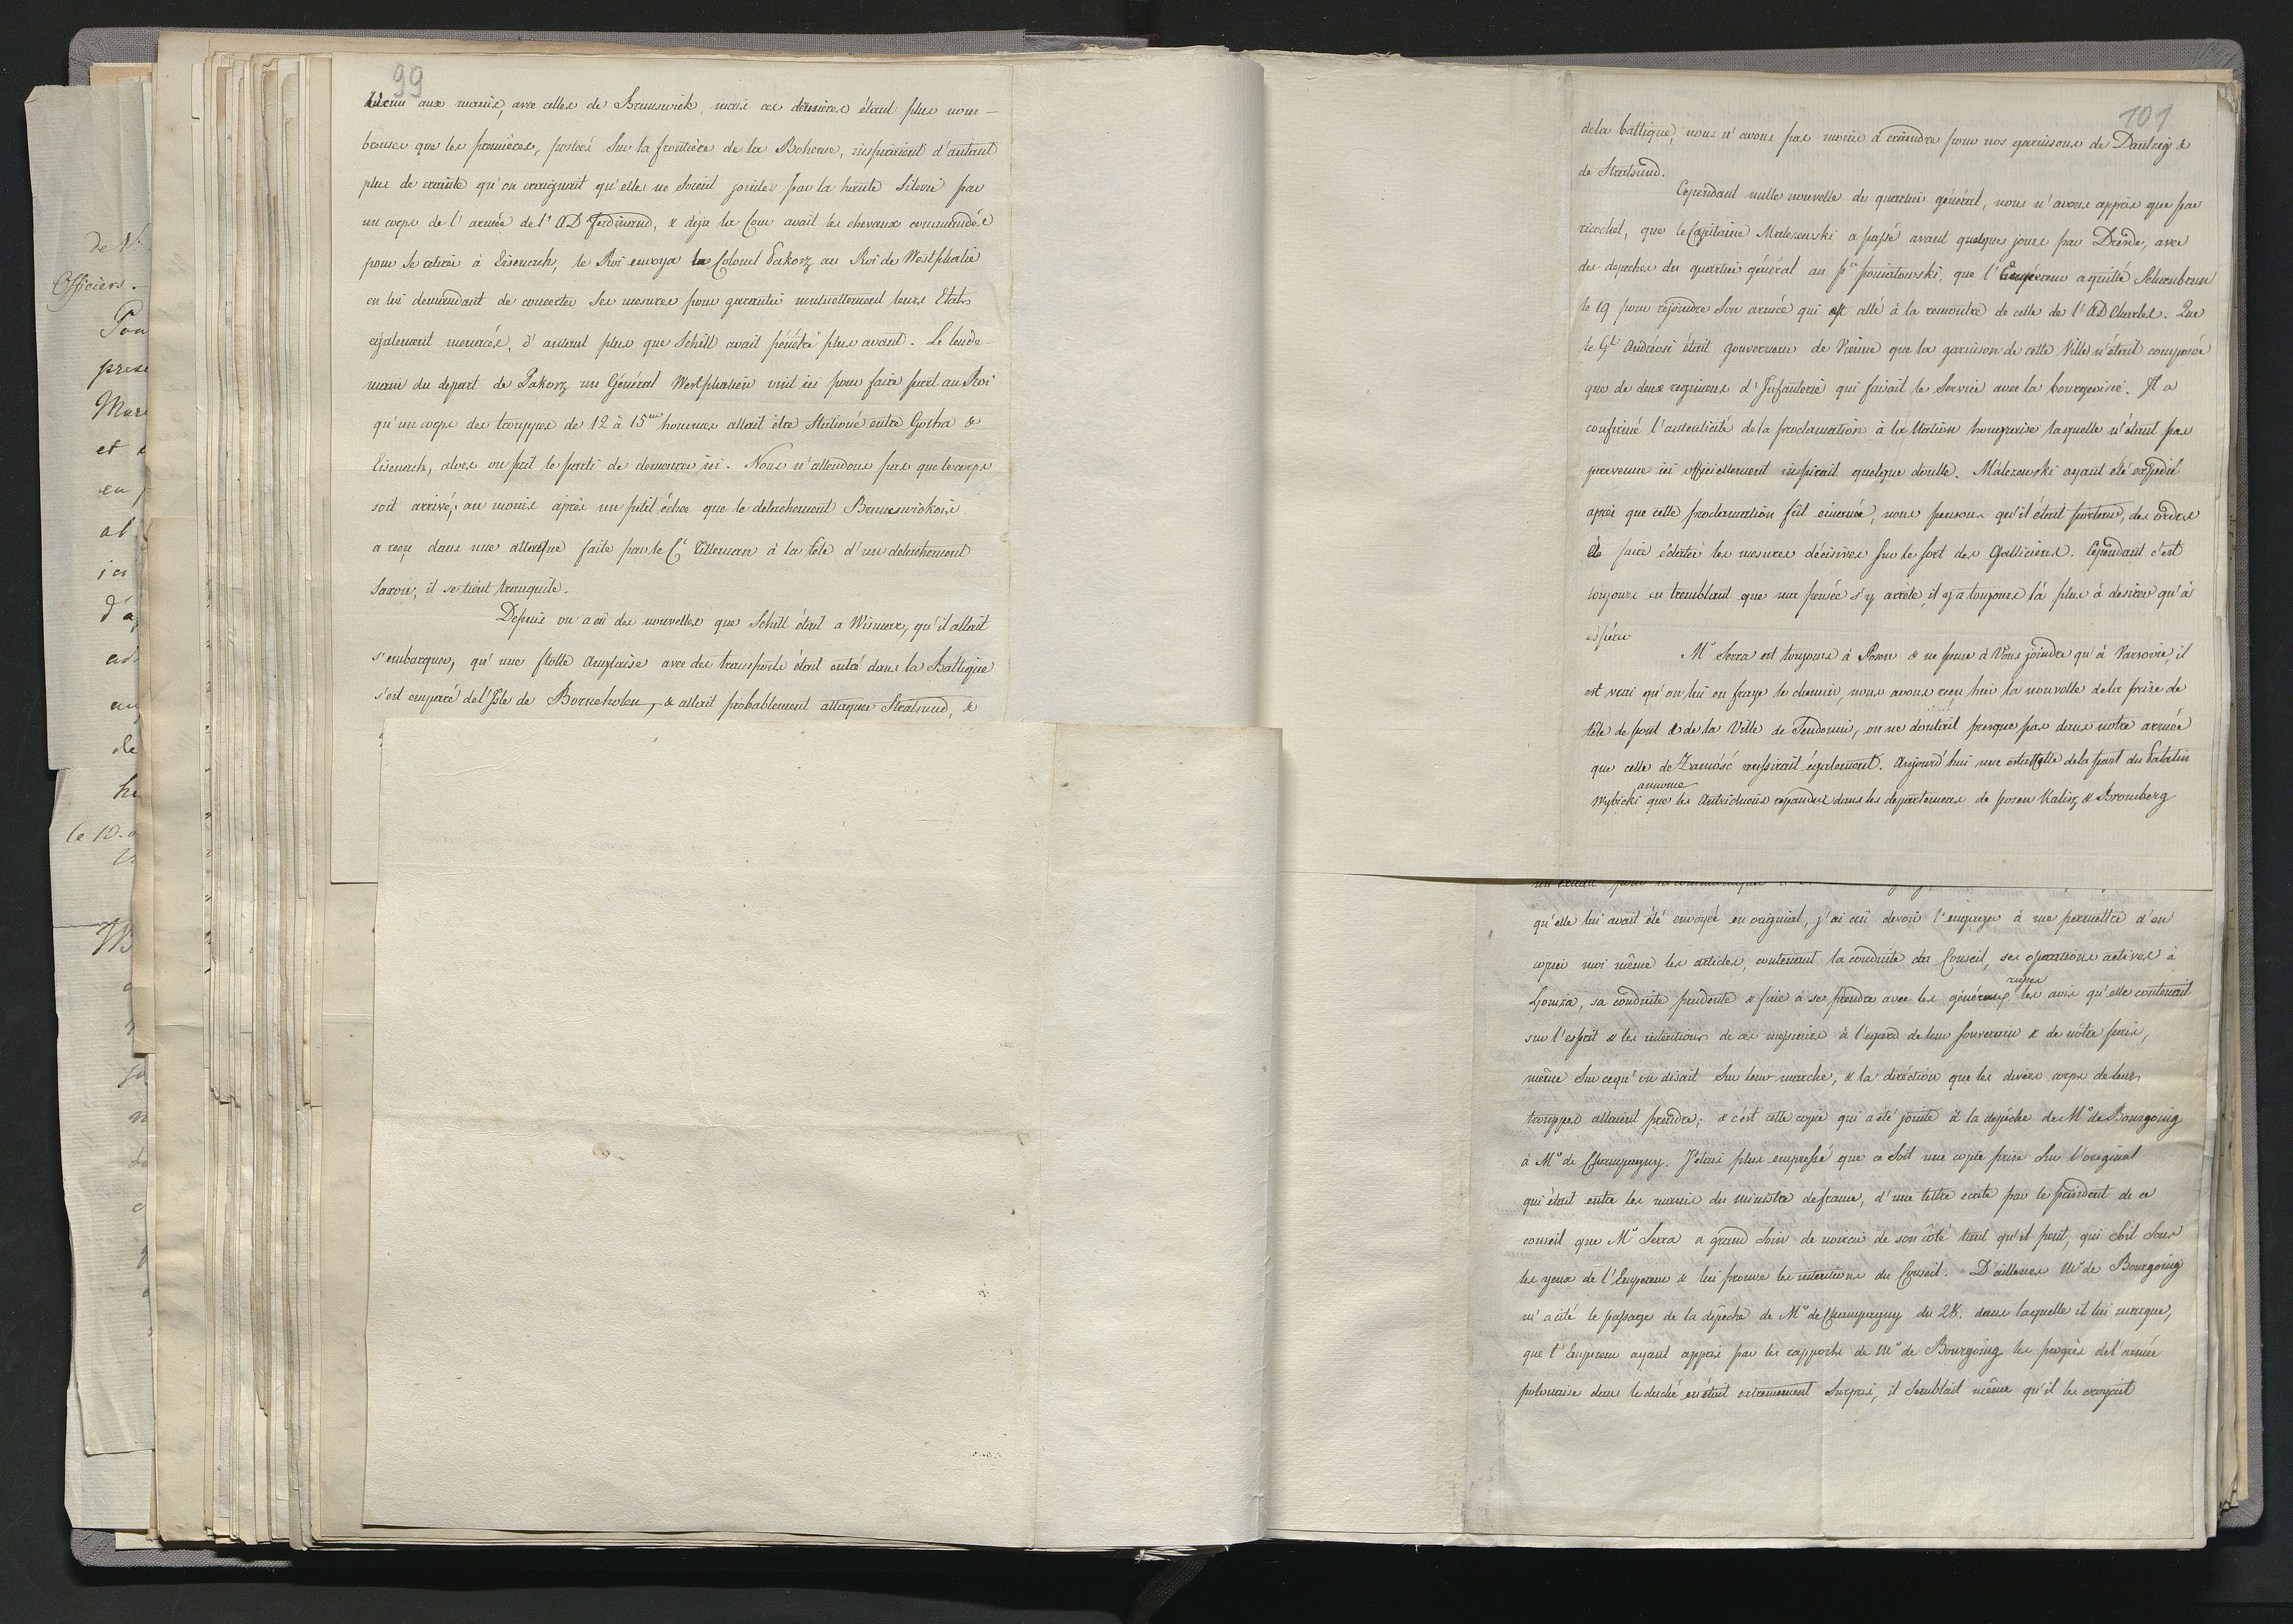 99
venu aux mains, avec celles de Brunswick, mais ces dernières étant plus nom-
breuses que les premières, postées sur la frontière de la Boheme, inspiraient d'autant
plus de crainte qu'on craignait qu'elles ne soient jointes par la haute Silesie par
un corps de l'armée de l'AD Ferdinand, & déja la Cour avait les chevaux commandés
pour se retirer à Eisenach, le Roi envoya le Colonel Pakosz au Roi de Westphalie
en lui demandant de concerter ses mesures pour garantir mutuellement leurs Etats
également menacés, d'autant plus que Schill avait pénétré plus avant. Le lende-
main du depart de Pakosz un Général Westphalien vint ici pour faire part au Roi
qu'un corps des trouppes de 12 à 15m hommes allait être stationé entre Gotha &
Eisenach, alors on prit le parti de demeurer ici. Nous n'attendons pas que le corps
soit arrivé, au moins après un petit échec que le detachement Brunswickois
a reçu dans une attaque faite par le Cl Tilleman à la tête d'un detachement
Saxon, il se tient tranquile.
Depuis on a eû des nouvelles que Schill était a Wismar, qu'il allait
s'embarquer, qu'une flotte Anglaise avec des transports étant entré dans la Baltique
s'est emparé de l'Isle de Borneholm, & allait probablement attaquer Stralsund, &
101
de la baltique, nous n'avons pas moins à craindre pour nos garnisons de Dantzig &
de Stralsund.
Cependant nulle nouvelle du quartier général, nous n'avons appris que par
ricochet, que le Capitaine Malezewski a passé avant quelques jours par Dresde, avec
des depeches du quartier général au pce poniatowski, que l'Empereur a quitté Schenbrun
le 19 pour rejoindre son armée qui est allé à la rencontre de celle de l'AD Charles. Que
le Gl Andréosi était gouverneur de Vienne que la garnison de cette Ville n'était composée
que de deux regimens d'Infanterie qui faisait le service avec la bourgeoisie. Il a
confirmé l'autenticité de la proclamation à la Nation hongroise laquelle n'étant pas
parvenue ici officiellement inspirait quelque doutte. Malezewski ayant été expedié
après que cette proclamation fût émanée, nous pensons qu'il était porteur, des ordres
de faire éclater les mesures décisives sur le sort des Galliciens. Cependant c'est
toujours en tremblant que ma pensée s'y arrête, il y a toujours là plus à desirer qu'à
espérer.
Mr Serra est toujours à Posen & ne pense à Vous joindre qu'à Varsovie, il
est vrai qu'on lui en fraye le chemin, nous avons reçu hier la nouvelle de la prise de
tête de pont & de la Ville de Sendomir, on ne doutait presque pas dans notre armée
que celle de Zamość reussirait également. Aujourd'hui une estaffette de la part du Palatin
Wybicki annonce que les Autrichiens repandus dans les departemens de posen Kalisz & Bromberg
qu'elle lui avait été envoyée en original, j'ai crû devoir l'engager à me permettre d'en
copier moi même les articles, contenant la conduite du Conseil, ses operations actives à
Lomza, sa conduite prudente & fine à se prendre avec les généraux russes les avis qu'elle contenait
sur l'esprit & les intentions de ces messieurs à l'egard de leur souverain & de nôtre pais,
même sur ce qu'on disait sur leur marche, & la diréction que les divers corps de leurs
trouppes allaient prendre; & c'est cette copie qui a été jointe à la depêche de Mr de Bourgoing
à Mr de Champagny. J'étais plus empressé que ce soit une copie prise sur l'original
qui était entre les mains du ministre de france, d'une lettre écrite par le président de ce
conseil que Mr Serra a grand soin de noircir de son côté tant qu'il peut, qui soit sous
les yeux de l'Empereur & lui prouve les intentions du Conseil. D'ailleurs Mr de Bourgoing
m'a cité le passage de la depêche de Mr de Champagny du 28. dans laquelle il lui marque,
que l'Empereur ayant appris par les rapports de Mr de Bourgoing les progrès de l'armée
polonaise dans le duché en était extremement surpris, il semblait même qu'il les croyait
de
Officiers.
Pou
et
en
al
ici
d'a
de
le 10.